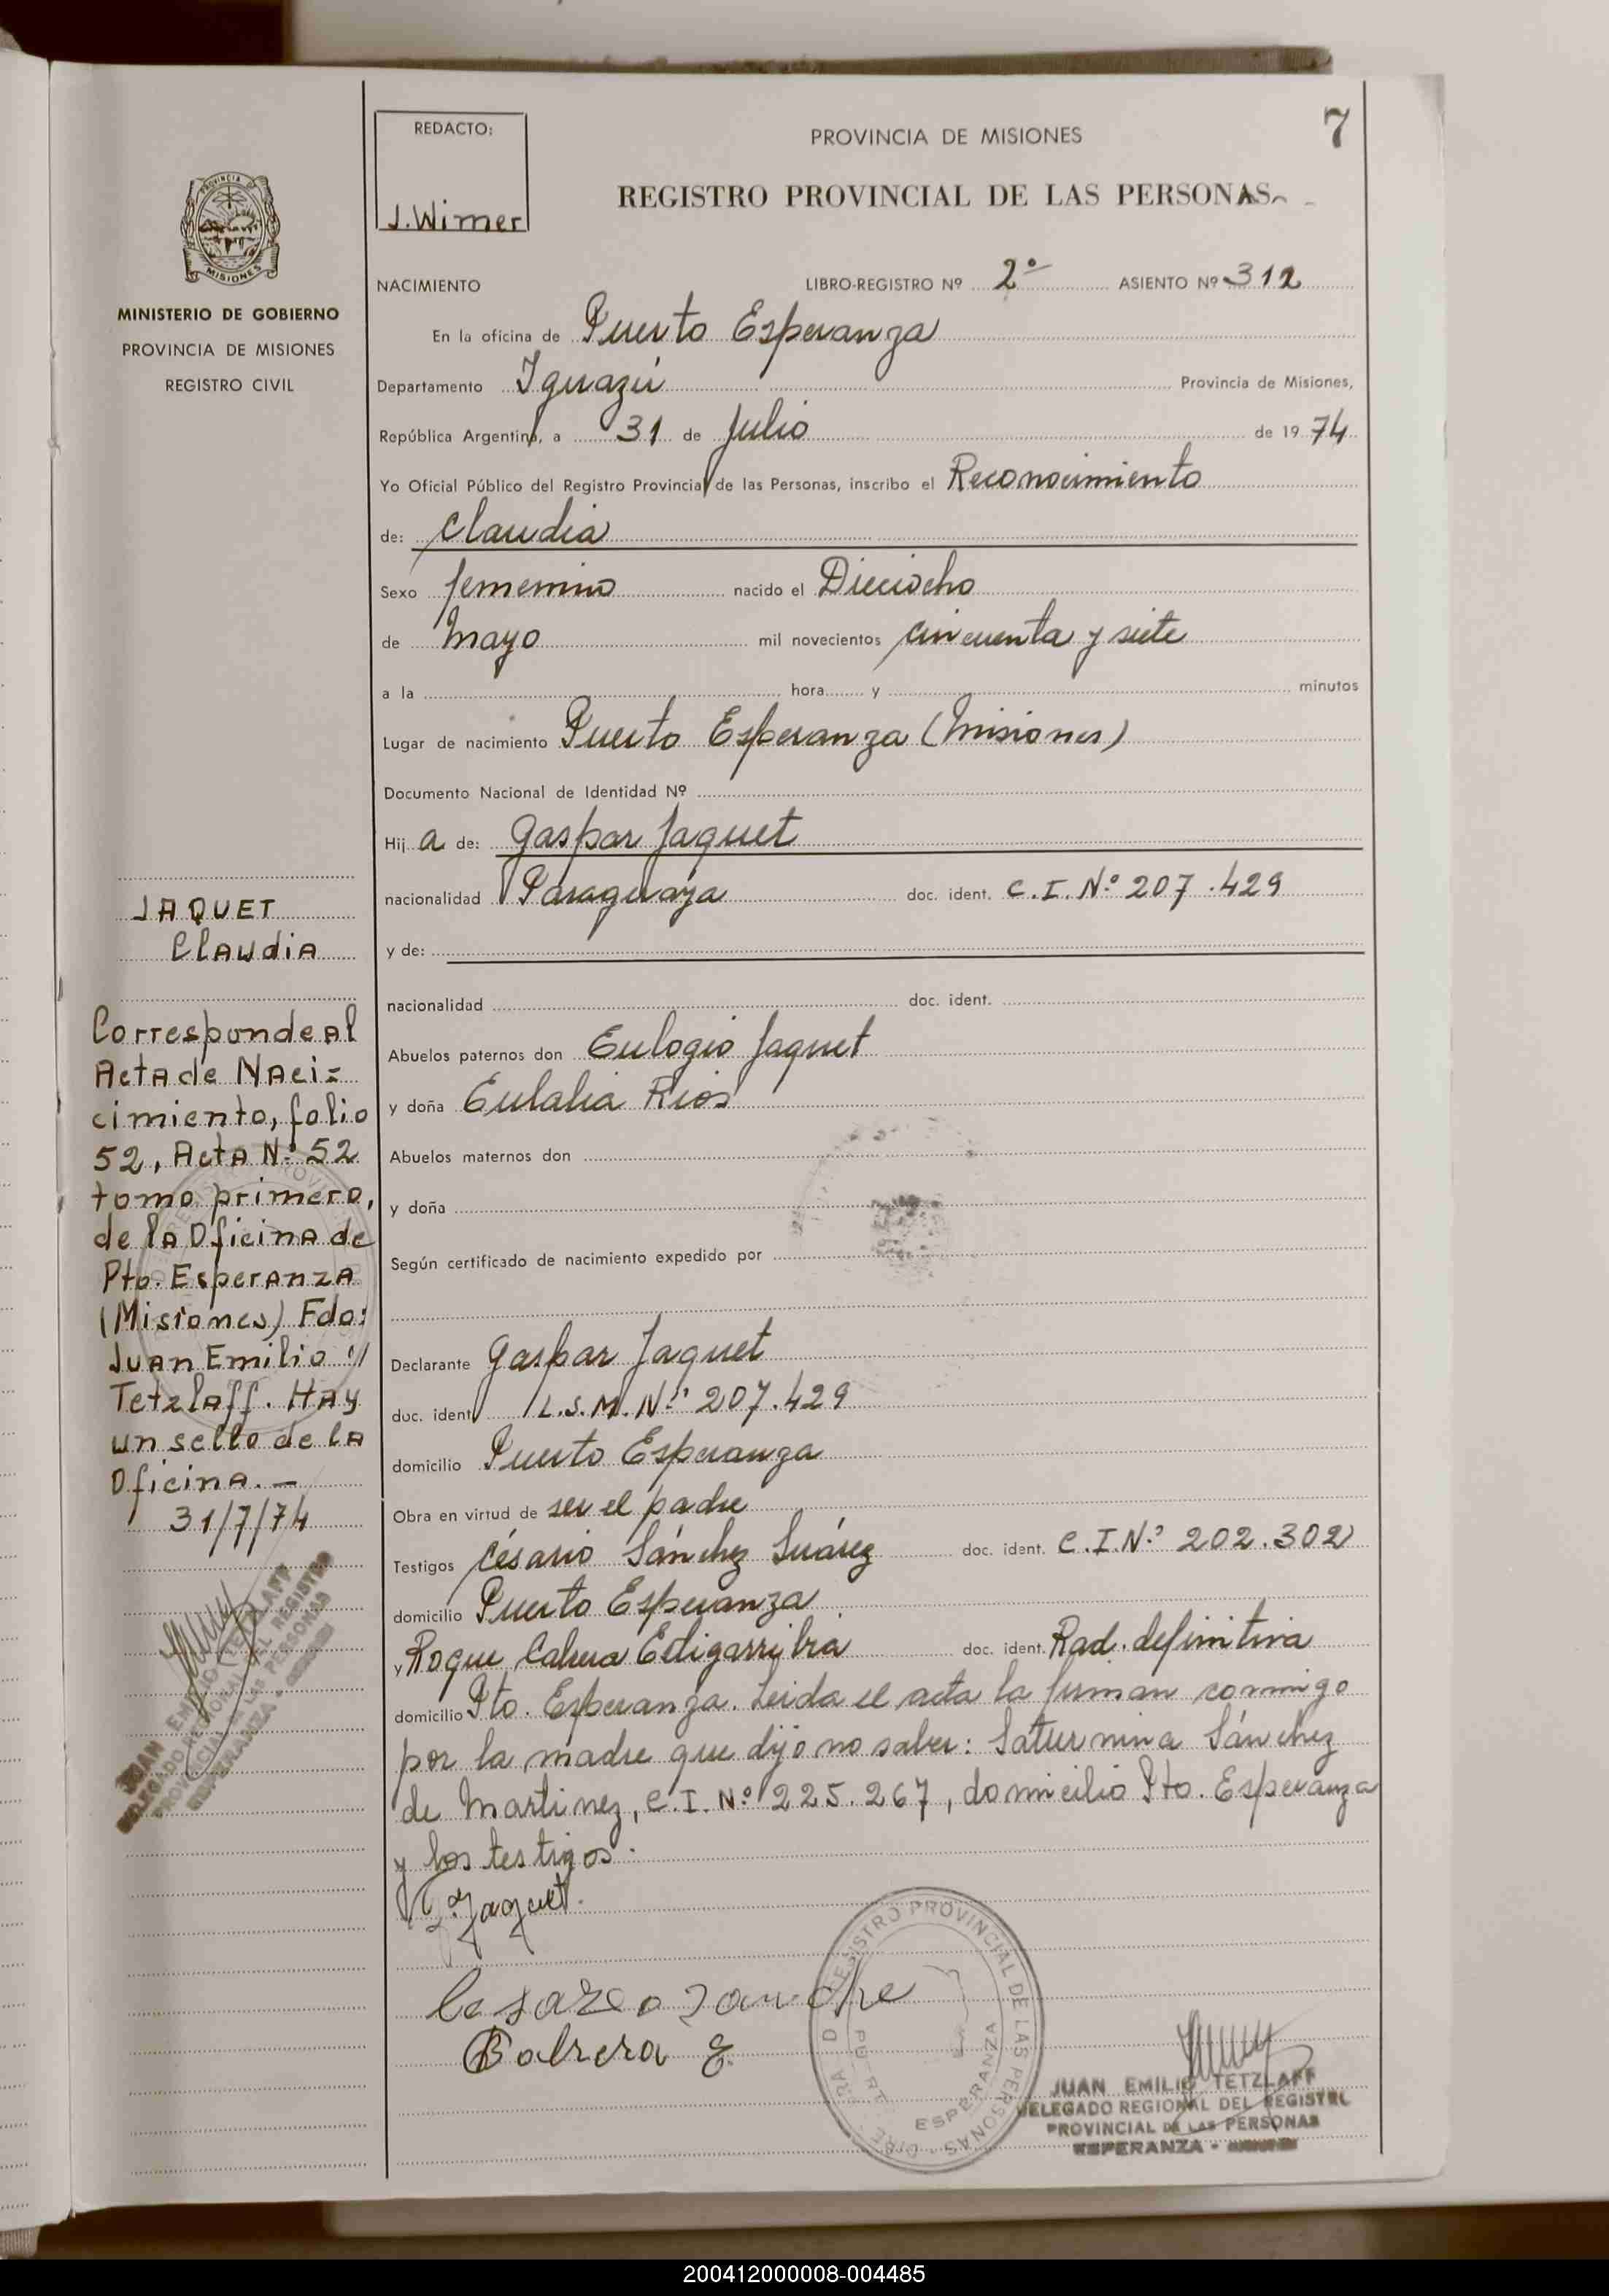 7
REDACTO:
J. Wimer
PROVINCIA DE MISIONES
REGISTRO PROVINCIAL DE LAS PERSONAS
PROVINCIA DE
MISIONES
MINISTERIO DE GOBIERNO
PROVINCIA DE MISIONES
REGISTRO CIVIL
NACIMIENTO LIBRO-REGISTRO Nº 2º ASIENTO Nº 312
En la oficina de Puerto Esperanza
Departamento Iguazú Provincia de Misiones,
República Argentina, a 31 de Julio de 1974
Yo Oficial Público del Registro Provincial de las Personas, inscribo el Reconocimiento
de: Claudia
Sexo femenino nacido el Dieciocho
de Mayo mil novecientos cincuenta y siete
a la hora y minutos
Lugar de nacimiento Puerto Esperanza (Misiones)
Documento Nacional de Identidad Nº
Hij a de: Gaspar Jaquet
nacionalidad Paraguaya doc. ident. C.I. Nº 207.429
y de:
nacionalidad doc. ident.
Abuelos paternos don Eulogio Jaquet
y doña Eulalia Rios
Abuelos maternos don
y doña
Según certificado de nacimiento expedido por
Declarante Gaspar Jaquet
doc. ident L.S.M. Nº 207.429
domicilio Puerto Esperanza
Obra en virtud de ser el padre
Testigos Césario Sánchez Suárez doc. ident. C.I.Nº 202.302
domicilio Puerto Esperanza
y Roque Cabrera doc. ident. Rad. definitiva
domicilio Pto. Esperanza. Leida el acta la firman conmigo
por la madre que dijo no saber: Saturnina Sánchez
de Martinez, C.I. Nº 225.267, domicilio Pto. Esperanza
y los testigos.
G. Jaquet.
Cesareo Sanche
Cabrera E.
JAQUET
Claudia
Corresponde al
Acta de Naci=
cimiento, folio
52, Acta Nº 52
tomo primero,
de la Oficina de
Pto. Esperanza
(Misiones) Fdo:
Juan Emilio
Tetzlaff. Hay
un sello de la
Oficina.—
31/7/74
JUAN EMILIO TETZLAFF
DELEGADO REGIONAL DEL REGISTRO
PROVINCIAL DE LAS PERSONAS
ESPERANZA -
REGISTRO PROVINCIAL DE LAS PERSONAS
ESPERANZA
JUAN EMILIO TETZLAFF
DELEGADO REGIONAL DEL REGISTRO
PROVINCIAL DE LAS PERSONAS
ESPERANZA -
200412000008-004485